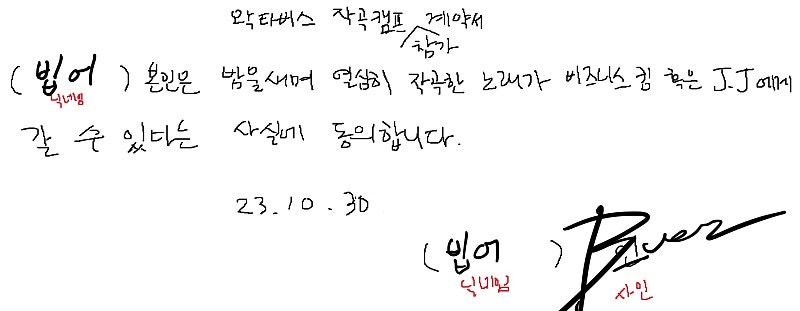 왁타버스 작곡캠프 참가 계약서
(빕어) 본인은 밤을새며 열심히 작곡한 노래가 비즈니스킴 혹은 J.J에게
닉네임
갈 수 있다는 사실에 동의합니다.
23.10.30
(빕어) 인
닉네임 사인